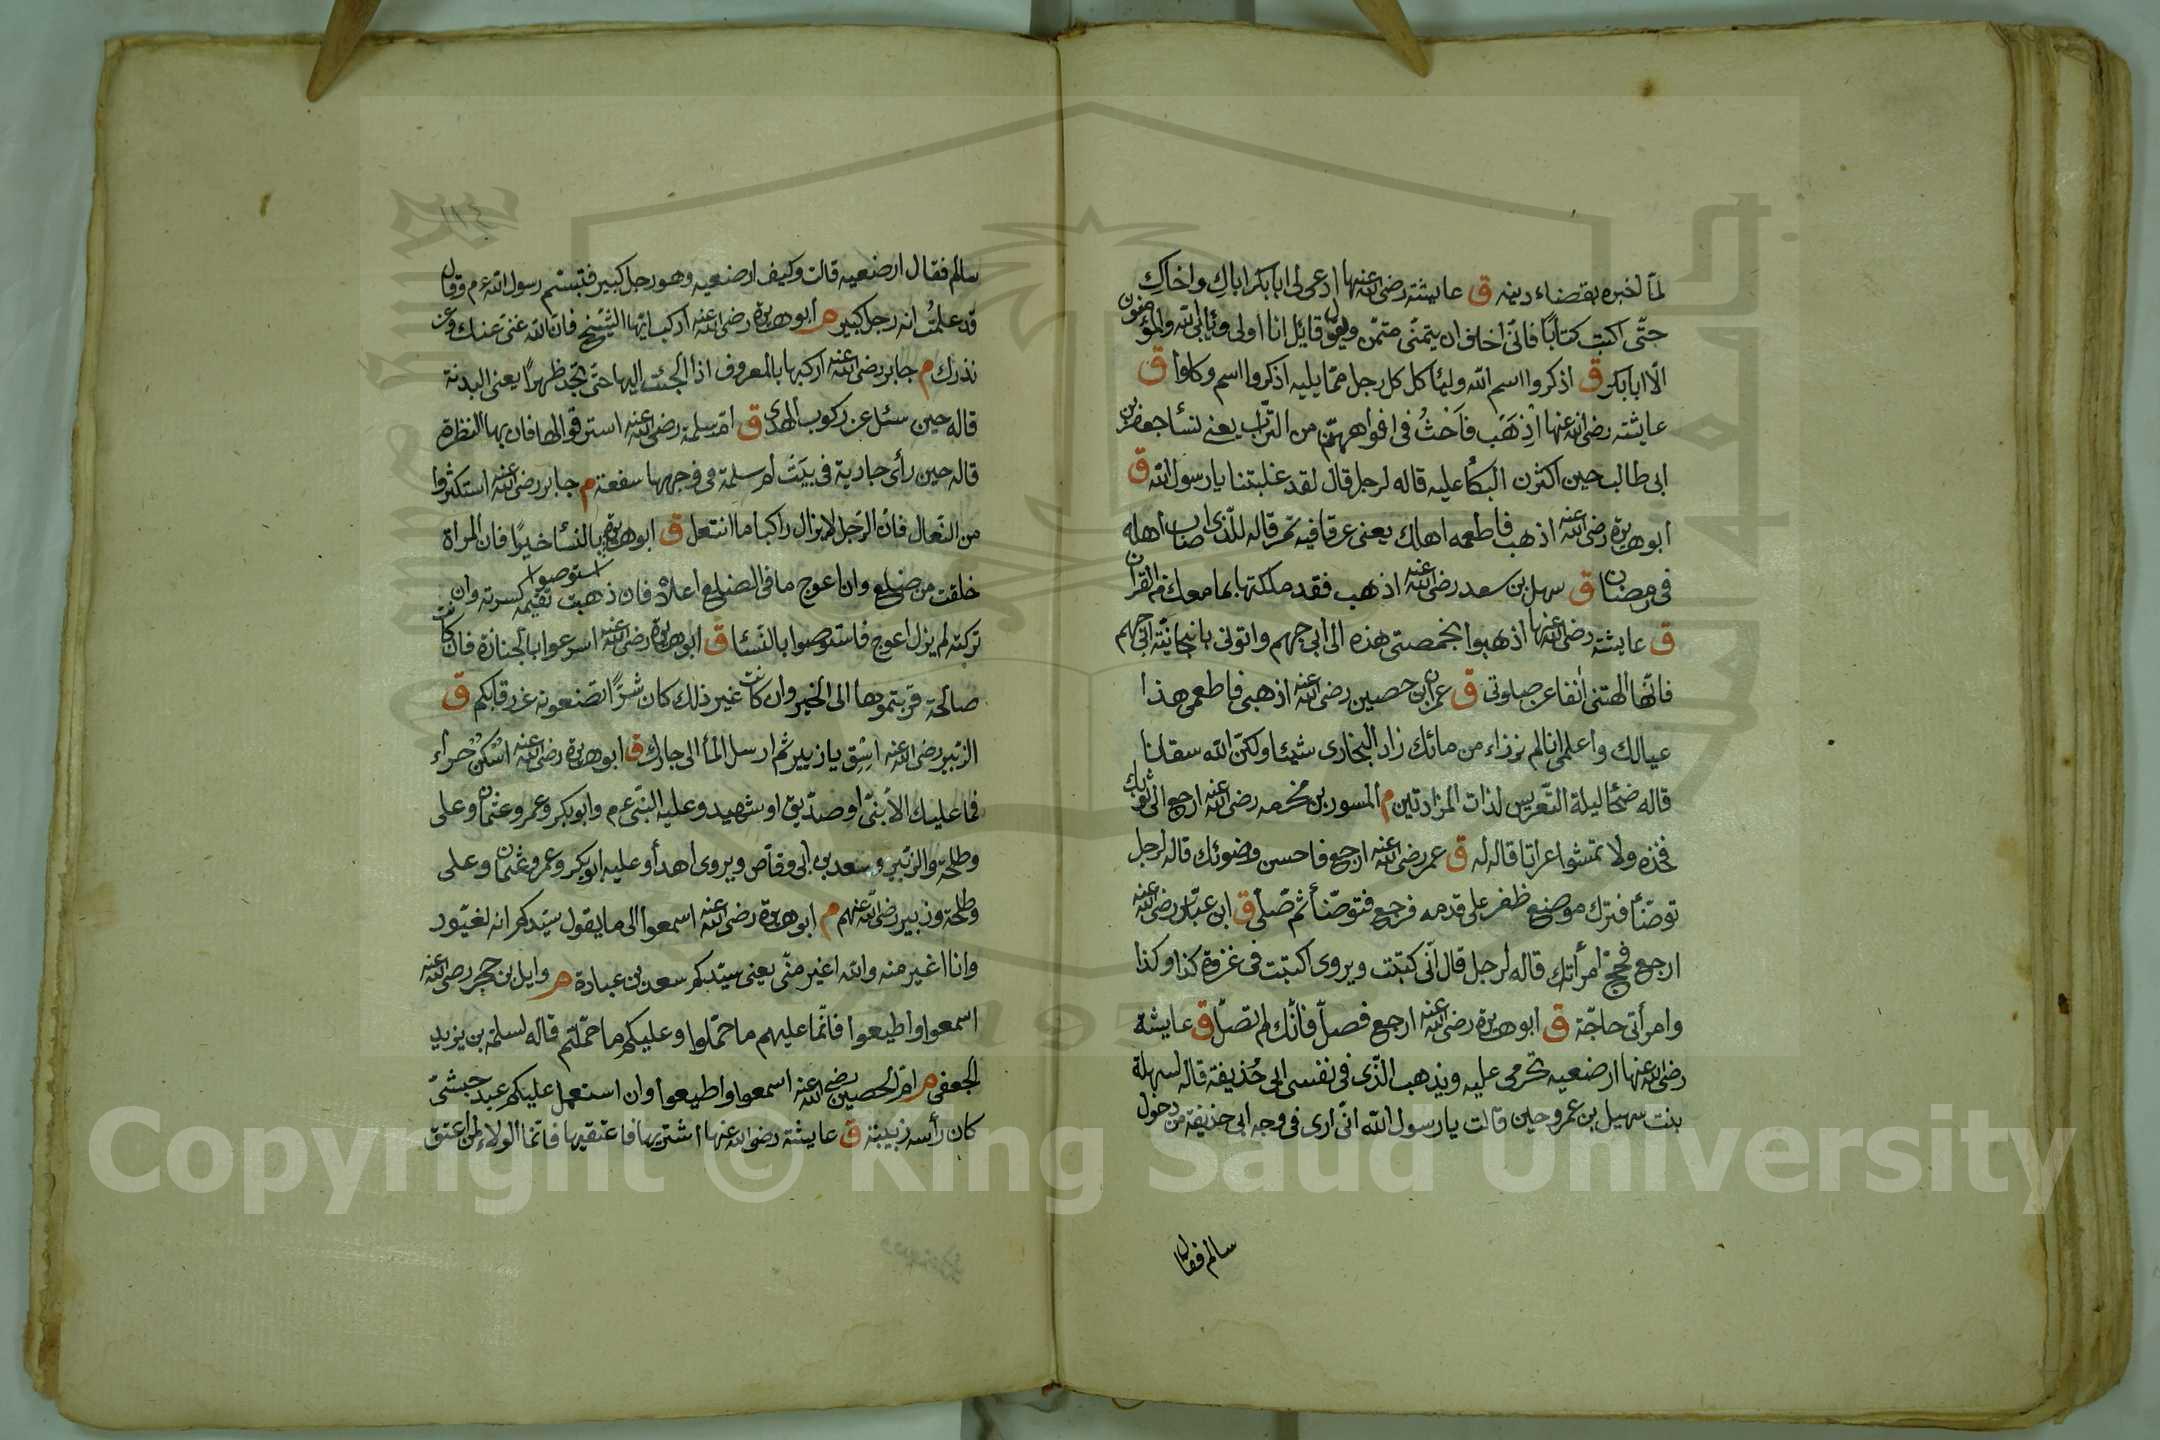 لما اخبره بقضاء دينه ق عايشة رضى الله عنها ادعى لى ابا بكر اباك واخاك
حتى اكتب كتابا فانى اخاف ان يتمنى متمن ويقول قايل انا اولى ويابى الله والمؤمنون
الا ابا بكر ق اذكروا اسم الله وليأكل كل رجل مما يليه اذكروا اسم وكلوا ق
عايشة رضى الله عنها اذهب فاحث فى افواههن من التراب يعنى نسأ جعفر بن
ابى طالب حين اكثرن البكأ عليه قاله لرجل قال لقد غلبتنا يا رسول الله ق
ابو هريرة رضى الله عنه اذهب فاطعمه اهلك يعنى عرقا فيه تمر قاله للذى اصاب اهله
فى رمضان ق سهل بن سعد رضى الله عنه اذهب فقد ملكتها بما معك من القرآن
ق عايشة رضى الله عنها اذهبوا بخمصتى هذه الى ابى جهم واتونى بانبجانية ابى جهم
فانها الهتنى انفا عن صلوتى ق عمران بن حصين رضى الله عنه اذهبى فاطعمى هذا
عيالك واعلمى انا لم نرزاء من مائك زاد البخارى شيئا ولكن الله سقانا
قاله ضحا ليلة التعريس لذات المزادتين م المسور بن مخرمه رضى الله عنه ارجع الى ثوبك
فخذه ولا تمشوا عراتا قاله له ق عمر رضى الله عنه ارجع فاحسن وضوئك قاله لرجل
توضأ فترك موضع ظفر على قدمه فرجع فتوضأ ثم صلى ق ابن عباس رضى الله عنه
ارجع فحج امرأتك قاله لرجل قال انى كتبت ويروى اكتبت فى غزوة كذا وكذا
وامرأتى حاجة ق ابو هريرة رضى الله عنه ارجع فصل فانك لم تصل ق عايشة
رضى الله عنها ارضعيه تحرمى عليه ويذهب الذى فى نفس ابى حذيفة قاله لسهلة
بنت سهيل بن عمرو حين قالت يا رسول الله انى ارى فى وجه ابى حذيفة من دخول
سالم فقال
١١٤
سالم فقال ارضعيه قالت وكيف ارضعيه وهو رجل كبير فتبسم رسول الله ءم وقال
قد علمت انه رجل كبير م ابو هريرة رضى الله عنه اركب ايها الشيخ فان الله غنى عنك وعن
نذرك م جابر رضى الله عنه اركبها بالمعروف اذا الجئت اليها حتى تجد ظهرا يعنى البدنة
قاله حين سئل عن ركوب الهدى ق ام سلمة رضى الله عنه استرقوا لها فان بها النظرة
قاله حين رأى جارية فى بيت ام سلمة فى وجهها سفعة م جابر رضى الله عنه استكثروا
من النعال فان الرجل لا يزال راكبا ما انتعل ق ابو هريرة بالنسأ خيرا فان المراة
استوصوا
خلقت من ضلع وان اعوج ما فى الضلع اعلاه فان ذهبت تقيمه كسرته وان
تركته لم يزل اعوج فاستوصوا بالنسأ ق ابو هريرة رضى الله عنه اسرعوا بالجنازة فان كانت
صالحة قربتموها الى الخير وان كانت غير ذلك كان شرا تضعونه عن رقابكم ق
الزبير رضى الله عنه اسق يا زبير ثم ارسل المأ الى جارك ق ابو هريرة رضى الله عنه اسكن حراء
فما عليك الا نبى او صديق او شهيد وعليه النبى ءم وابو بكر وعمر وعثمان وعلى
وطلحة والزبير وسعد بن ابى وقاص ويروى اهدأ وعليه ابو بكر وعمر وعثمان وعلى
وطلحة وزبير رضى الله عنهم م ابو هريرة رضى الله عنه اسمعوا الى ما يقول سيدكم انه لغيور
وانا اغير منه والله اغير منى يعنى سيدكم سعد بن عبادة م وايل بن حجر رضى الله عنه
اسمعوا واطيعوا فانما عليهم ما حملوا وعليكم ما حملتم قاله لسلمة بن يزيد
الجعفى م ام الحصين رضى الله عنه اسمعوا واطيعوا وان استعمل عليكم عبد حبشى
كان رأسه زبيبة ق عايشة رضى الله عنها اشتريها فاعتقيها فانما الولاء لمن اعتق
Copyright © King Saud University